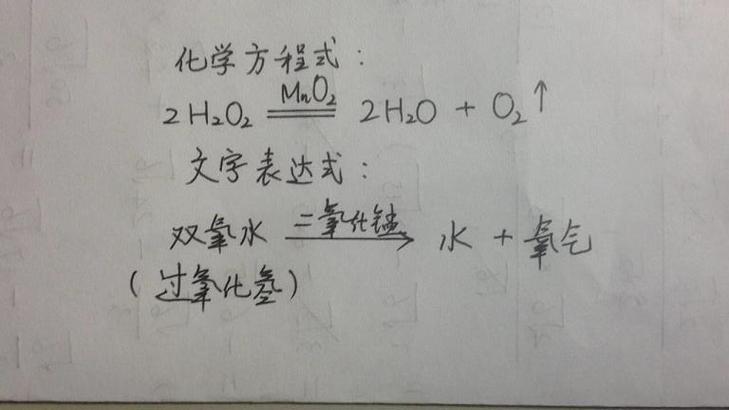 化学方程式:
2H₂O₂ ═ MnO₂ ═ 2H₂O + O₂↑
文字表达式:
双氧水 —二氧化锰→ 水 + 氧气
(过氧化氢)